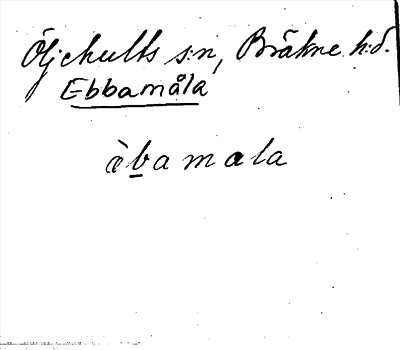 Öljehults s:n, Bräkne h:d.
Ebbamåla
àbamala